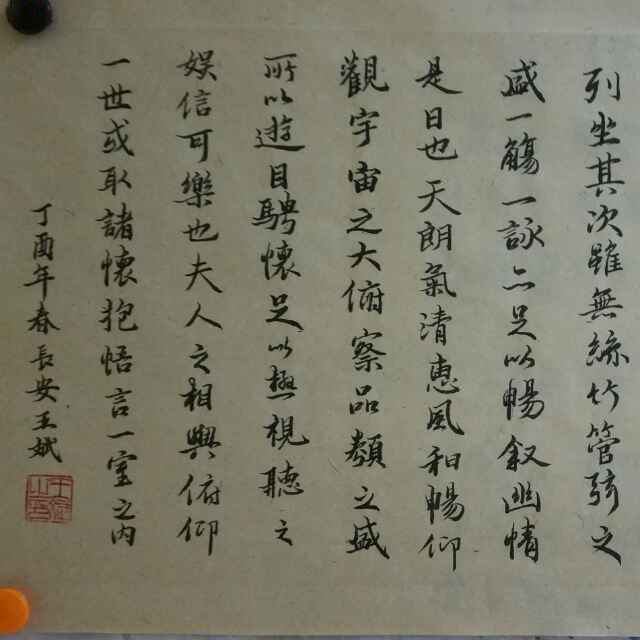 列坐其次雖無絲竹管弦之
盛一觴一詠亦足以暢叙幽情
是日也天朗氣清惠風和暢仰
觀宇宙之大俯察品類之盛
所以遊目騁懷足以極視聽之
娛信可樂也夫人之相與俯仰
一世或取諸懷抱悟言一室之内
丁酉年春長安王斌